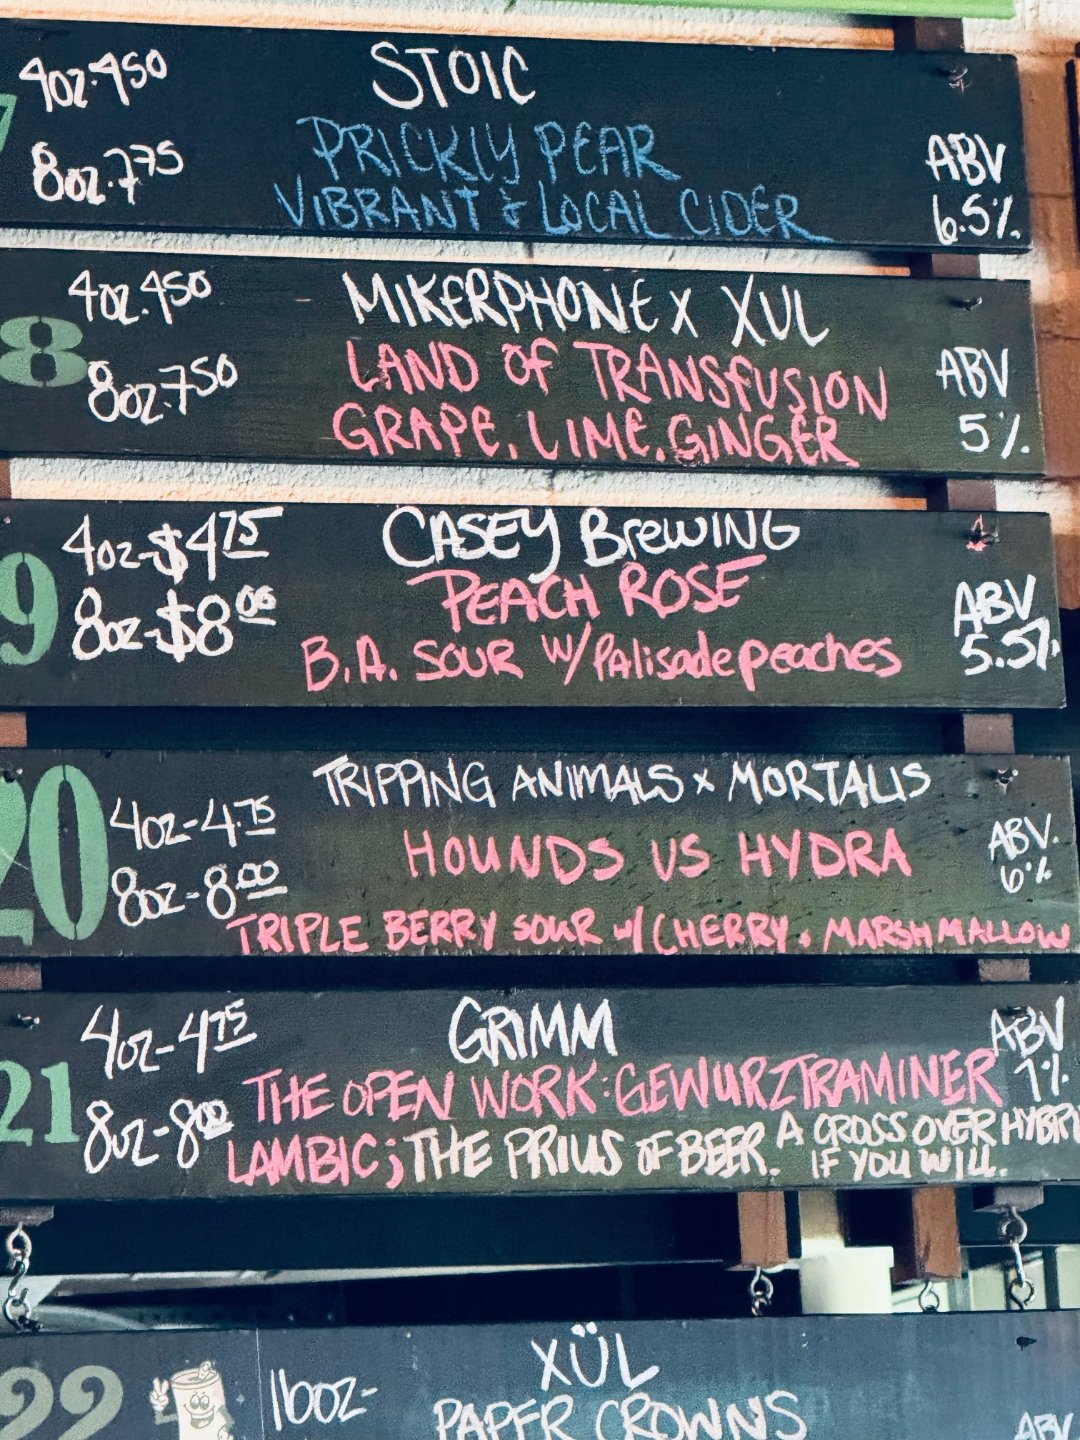 7
4oz.450
8oz.775
STOIC
PRICKLY PEAR
VIBRANT & LOCAL CIDER
ABV
6.5%
8
4oz.450
8oz.750
MIKERPHONE X XUL
LAND OF TRANSFUSION
GRAPE, LIME, GINGER
ABV
5%
9
4oz-$475
8oz-$800
CASEY BREWING
PEACH ROSE
B.A. SOUR W/Palisade peaches
ABV
5.5%
20
4oz-4.75
8oz-8.00
TRIPPING ANIMALS x MORTALIS
HOUNDS VS HYDRA
TRIPLE BERRY SOUR w/ CHERRY, MARSHMALLOW
ABV.
6%
21
4oz-475
8oz-800
GRIMM
THE OPEN WORK: GEWURZTRAMINER
LAMBIC; THE PRIUS OF BEER. A CROSS OVER HYBRI
IF YOU WILL.
ABV
7%
22
16oz-
XÜL
PAPER CROWNS
ABV